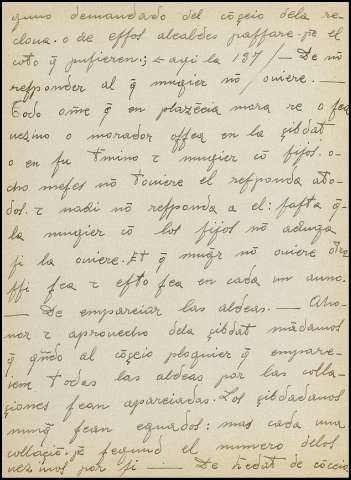 guno demandado del cōçeio dela re-
clona. o de essos alcaldes passare. pē el
coto q̄ pusieren.; ⁊ aqi la 137/ — De nō
responder al q̄ mugier nō oviere. —
Todo om̄e q̄ en plazēcia mora re o sea
vezino o morador assea en la çibdat
o en su tmino ⁊ mugier cō fijos. o-
cho meses nō toviere el responda ato-
dos. ⁊ nadi nō responda a el: fasta q̄-
la mugier cō los fijos nō aduga
si la oviere. Et q̄ mugr nō oviere ōtre
ssi sea ⁊ esto sea en cada un anno.
— De empareiar las aldeas. — Aho-
nor ⁊ aprovecho dela çibdat mādamos
q̄ qñdo al cōçeio ploguier q̄ empare-
ien, todas las aldeas por las colla-
çiones sean apareiadas. Los çibdadanos
minq̄ sean eguados: mas cada una
collaçiō. pē segund el numero delos
vezinos por si — De hedat de cōceio